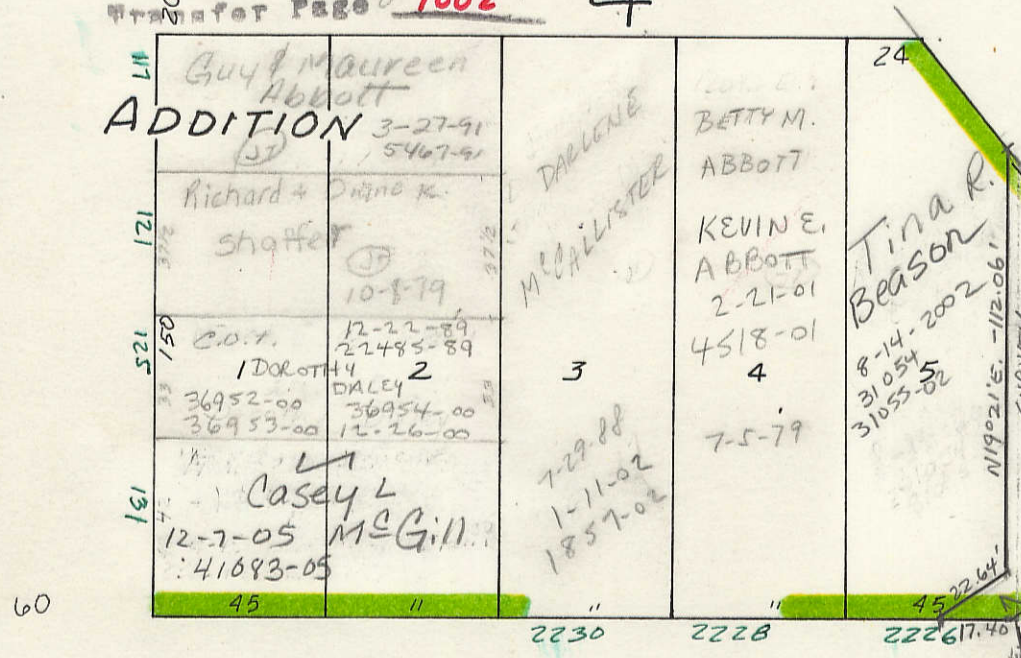 Transfer Page 1002
117
Guy & Maureen
Abbott
ADDITION
3-27-91
JT
5467-91
121
Richard &
Shaffer
37 1/2
37 1/2
JT
10-8-79
125
150
C.O.T.
12-22-89
22485-89
1 DOROTHY 2
DALEY
33
36952-00
36954-00
36953-00
12-26-00
131
Casey L
McGill
12-7-05
41083-05
DARLENE
McCALLISTER
3
7-29-88
1-11-02
1857-02
BETTY M.
ABBOTT
KEVIN E.
ABBOTT
2-21-01
4518-01
4
7-5-79
24
Tina R.
Beason
8-14-2002
31054
31055-02
5
N19021'E. -112.06'
22.64'
60
45
"
"
"
45
17.40
2230
2228
2226